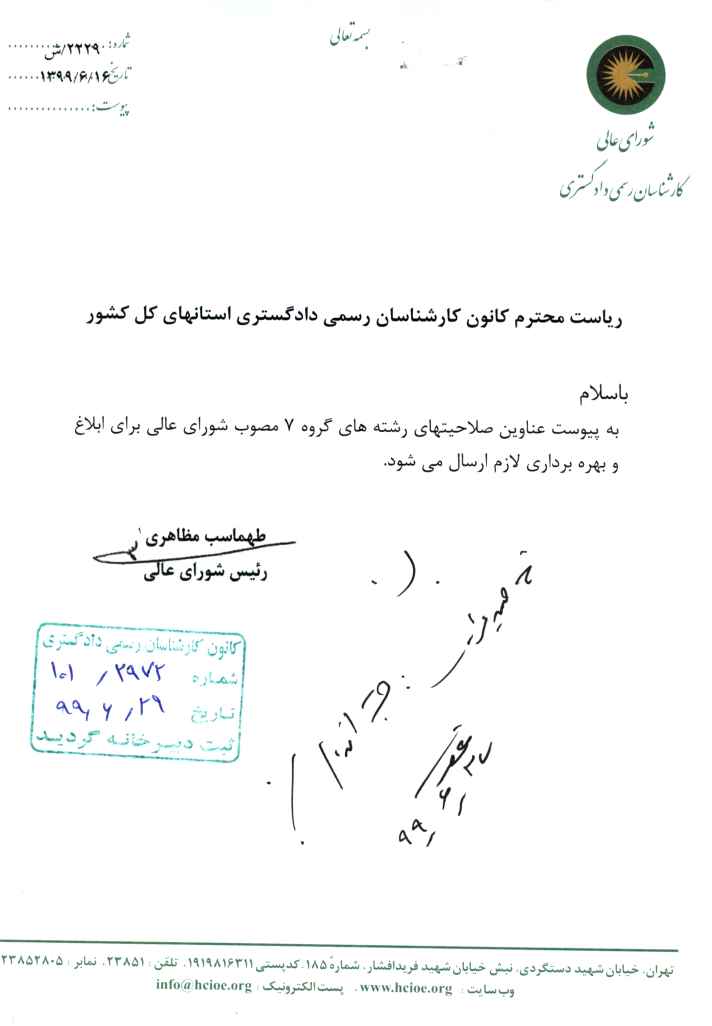 بسمه تعالی
شماره: ۲۲۲۹۰/ش
تاریخ: ۱۳۹۹/۶/۱۶
پیوست: ...............
شورای عالی
کارشناسان رسمی دادگستری
ریاست محترم کانون کارشناسان رسمی دادگستری استانهای کل کشور
باسلام
به پیوست عناوین صلاحیتهای رشته های گروه ۷ مصوب شورای عالی برای ابلاغ
و بهره برداری لازم ارسال می شود.
طهماسب مظاهری
رئیس شورای عالی
کانون کارشناسان رسمی دادگستری
شماره ۱۰۱/۲۹۷۲
تاریخ ۹۹/۶/۲۹
ثبت دبیرخانه گردید
تهران، خیابان شهید دستگردی، نبش خیابان شهید فریدافشار، شمارهٔ ۱۸۵. کدپستی ۱۹۱۹۸۱۶۳۱۱. تلفن: ۲۳۸۵۱. نمابر: ۲۳۸۵۲۸۰۵
وب سایت: www.hcioe.org . پست الکترونیک: info@hcioe.org